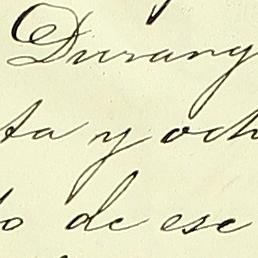 Durang
ta y och
to de ese